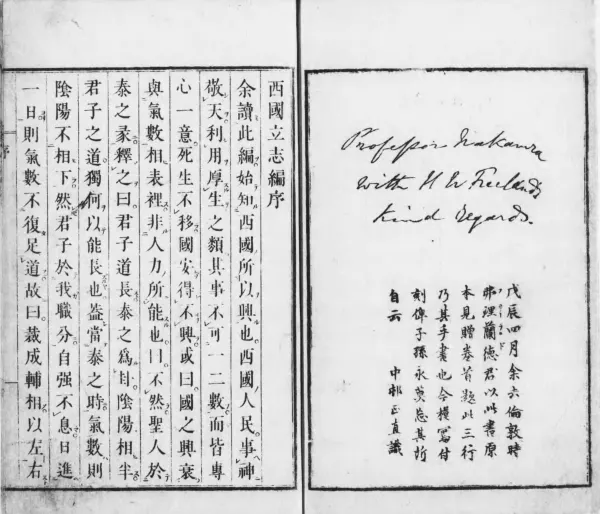 Professor Nakamura
with H W Freeland's
kind Regards.
戊辰四月余在倫敦時
弗理蘭徳君以此書原
本見贈巻首題此三行
乃其手書也今模冩付
刻俾子孫永莫忘其所
自云 中邨正直識
西國立志編序
余讀此編始知西國所以興也西國人民事神
敬天利用厚生之類其事不可一二數而皆專
心一意死生不移國安得不興或曰國之興衰
與氣數相表裡非人力所能也曰不然聖人於
泰之彖釋之曰君子道長泰之爲卦陰陽相半
君子之道獨何以能長也蓋當泰之時氣數則
陰陽不相下然君子於我職分自强不息日進
一日則氣數不復足道故曰裁成輔相以左右
序